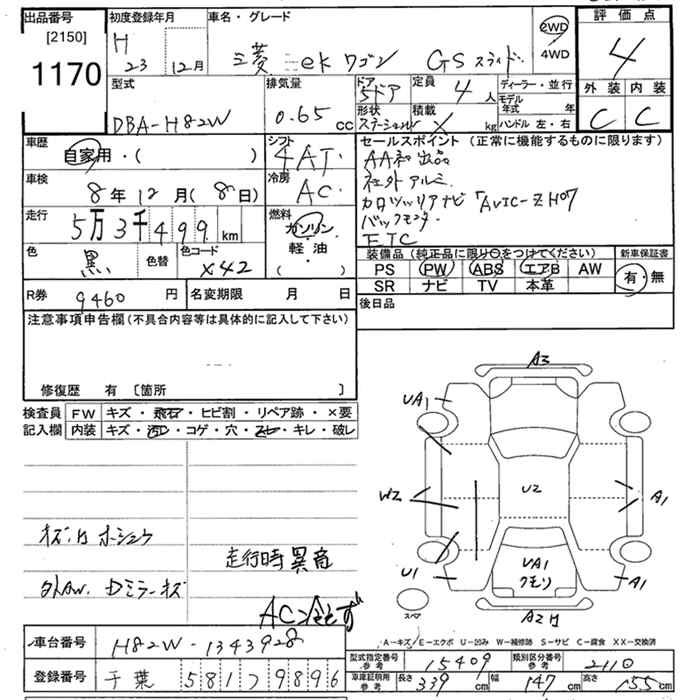 出品番号
[2150]
1170
初度登録年月
H
23 12月
車名・グレード
三菱 ek ワゴン GS スライド
2WD
4WD
評価点
4
外装 内装
C C
型式
DBA-H82W
排気量
0.65 cc
ドア
5ドア
形状
定員
4 人
積載
× kg
ディーラー・並行
モデル年式 年
ハンドル 左・右
車歴
自家用・( )
シフト
4AT
セールスポイント (正常に機能するものに限ります)
AA初出品
社外アルミ
カロッツェリアナビ「AVIC-ZH07
バックモニター
ETC
車検
8年12月(8日)
冷房
AC
走行
5万3千499 km
燃料
ガソリン
軽・油
( )
色
黒
色替
色コード
X42
装備品 (純正品に限り○をつけてください)
PS PW ABS エアB AW
SR ナビ TV 本革
新車保証書
有・無
R券
9460 円
名変期限 月 日
後日品
注意事項申告欄(不具合内容等は具体的に記入して下さい)
修復歴 有 〔箇所 〕
検査員 FW キズ・飛石・ヒビ割・リペア跡・×要
記入欄 内装 キズ・汚レ・コゲ・穴・スレ・キレ・破レ
走行時異音
A3
UA1
W2
U2
A1
U1
UA1
クモリ
A1
スペア
A-キズ/E-エクボ U-凹み W-補修跡 S-サビ C-腐食 XX-交換済
車台番号 H82W-1343928
登録番号 千葉 581 9896
型式指定番号
参考
15409
類別区分番号
参考
2110
車庫証明用
参考
長さ 339 cm 幅 147 cm 高さ 155 cm